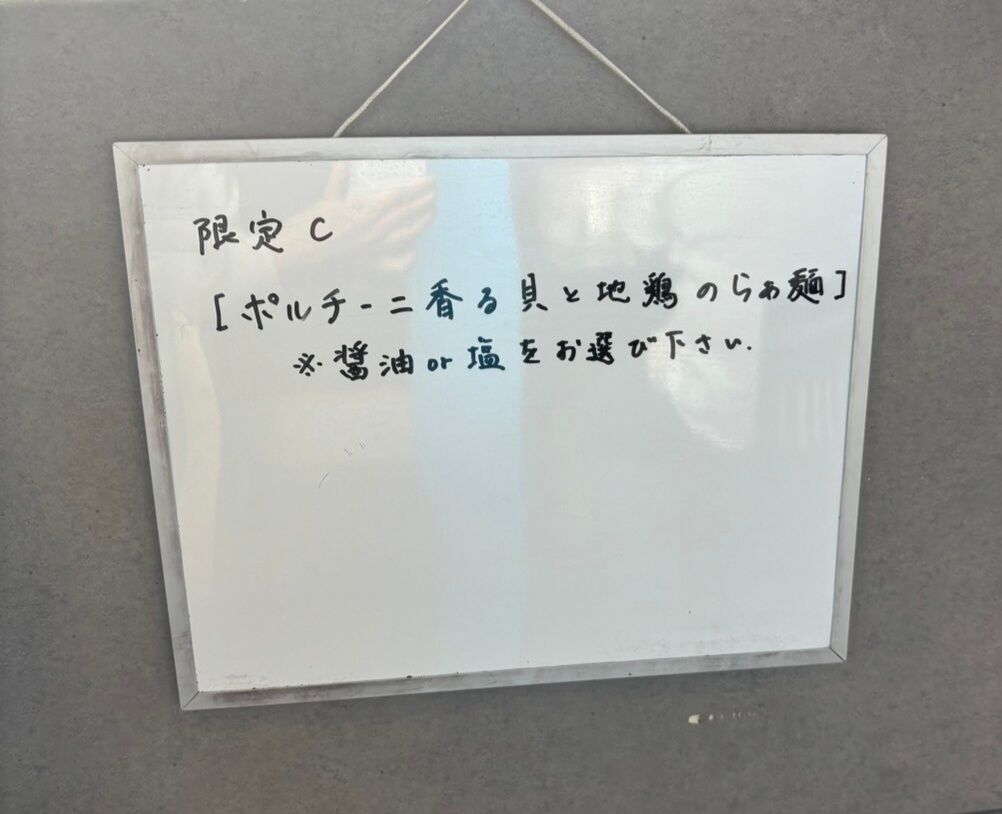 限定 C
[ポルチーニ香る貝と地鶏のらぁ麺]
※醤油or塩をお選び下さい.